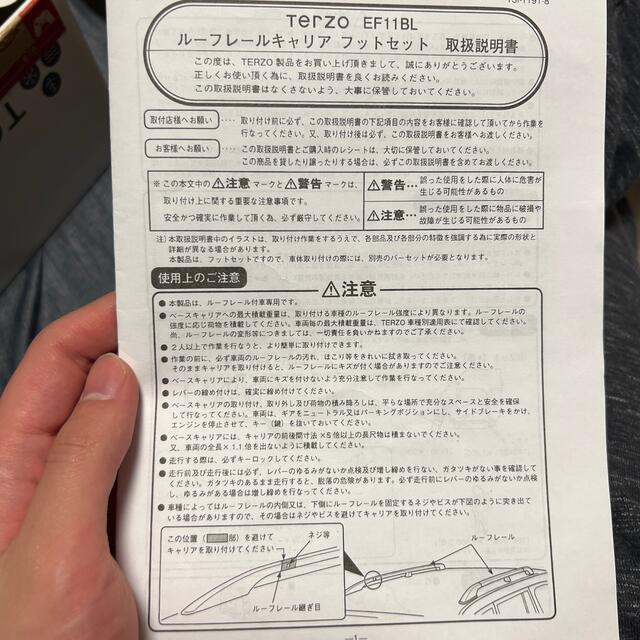 Terzo EF11BL
ルーフレールキャリア フットセット 取扱説明書
この度は、TERZO 製品をお買い上げ頂きまして、誠にありがとうございます。
正しくお使い頂く為に、取扱説明書を良くお読みください。
この取扱説明書はなくさないよう、大事に保管しておいてください。
取付店様へお願い ・・・・ 取り付け前に必ず、この取扱説明書の下記項目の内容をお客様に確認して頂いてから作業を
行なってください。又、取り付け後は必ず、この取扱説明書をお客様へお渡しください。
お客様へお願い ・・・・ この取扱説明書とご購入時のレシートは、大切に保管しておいてください。
この商品を貸したり譲ったりする場合は、必ずこの取扱説明書を含めてお渡しください。
※この本文中の⚠注意 マークと⚠警告 マークは、
取り付け上に関する重要な注意事項です。
安全かつ確実に作業して頂く為、必ず厳守してください。
⚠警告… 誤った使用をした際に人体に危害が
生じる可能性があるもの
⚠注意… 誤った使用をした際に物品に破損や
故障が生じる可能性があるもの
注)本取扱説明書中のイラストは、取り付け作業をするうえで、各部品及び各部分の特徴を強調する為に実際の形状と
詳細が異なる場合があります。
本製品は、フットセットですので、車体取付の際には、別売のバーセットが必要となります。
使用上のご注意
⚠注意
●本製品は、ルーフレール付車専用です。
●ベースキャリアへの最大積載重量は、取り付ける車種のルーフレール強度により異なります。ルーフレールの
強度に応じ荷物を積載してください。車両毎の最大積載重量は、TERZO 車種別適用表にて確認してください。
尚、ルーフレールの変形等につきましては、一切責任を負いかねますのでご了承ください。
●2人以上で作業を行なうと、より簡単に取付けできます。
●作業の前に、必ず車両のルーフレールの汚れ、ほこり等をきれいに拭き取ってください。
そのままキャリアを取り付けると、ルーフレールにキズが付く場合がありますのでご注意ください。
●ベースキャリアにより、車両にキズを付けないよう充分注意して作業を行なってください。
●レバーの締め付けは、確実に締め付けてください。
●ベースキャリアの取り付け、取り外し及び荷物の積み降ろしは、平らな場所で充分なスペースと安全を確保
して行なってください。車両は、ギアをニュートラル又はパーキングポジションにし、サイドブレーキをかけ、
エンジンを停止させて、キー(鍵)を抜いておいてください。
●ベースキャリアには、キャリアの前後間寸法×5倍以上の長尺物は積まないでください。
又、車両の全長×1.1倍を出ないように積載してください。
●走行する際は、必ずキーロックしてください。
●走行前及び走行後には必ず、レバーのゆるみがないか点検及び増し締めを行ない、ガタツキがない事を確認して
ください。ガタツキのあるまま走行すると、脱落の危険があります。必ず走行前にレバーのゆるみがないか点検
し、ゆるみがある場合は増し締めを行なってください。
●車種によってはルーフレールの内側又は、下側にルーフレールを固定するネジやビスが下図のように突き出て
いる場合がありますので、その場合はネジやビスを避けてキャリアを取り付けてください。
この位置( 部)を避けて
キャリアを取り付けてください
ネジ等
ルーフレール継ぎ目
ルーフレール
—1—